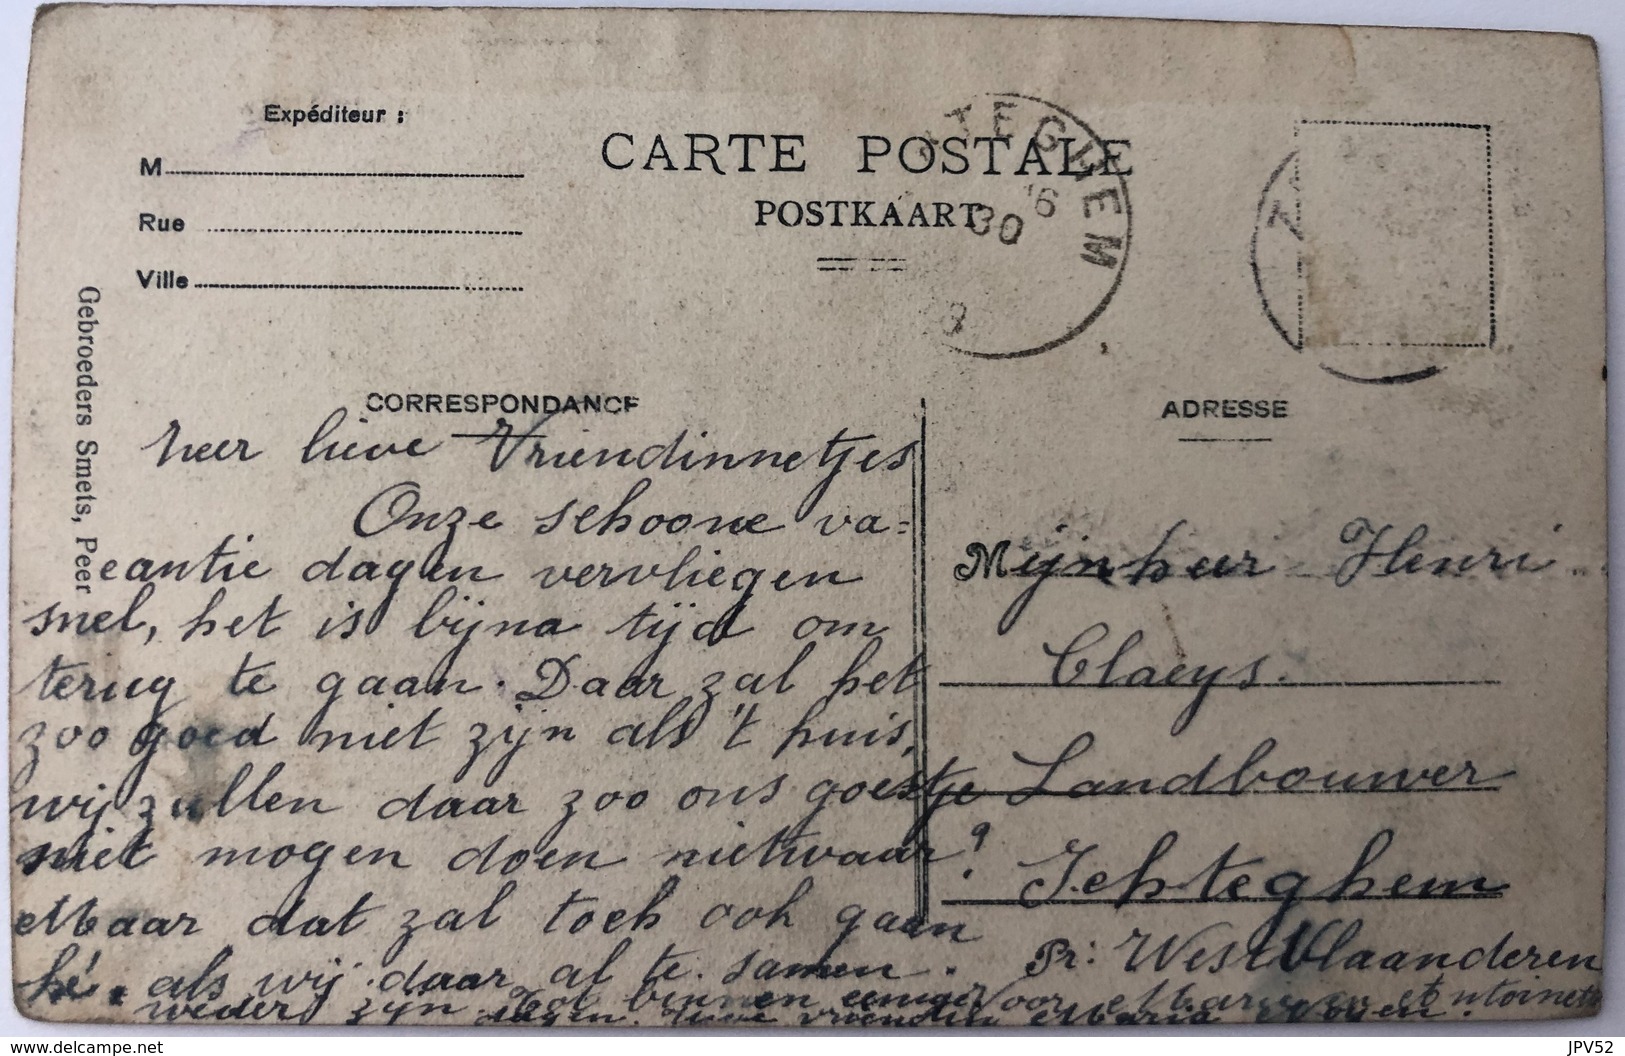 Expéditeur :
M
Rue
Ville
CARTE POSTALE
POSTKAART
TEGHEM
30
Gebroeders Smets, Peer
CORRESPONDANCE
heer lieve Vriendinnetjes
Onze schoone va=
cantie dagen vervliegen
snel, het is bijna tijd om
terug te gaan. Daar zal het
zoo goed niet zijn als 't huis,
wij zullen daar zoo ons goestje
niet mogen doen nietwaar?
Maar dat zal toch ook gaan
hé. als wij daar al te samen.
weder zijn. Tot binnen eenige
dagen. uwe vriendin Maria
ADRESSE
Mijnheer Henri
Claeys.
Landbouwer
Ichteghem
Pr: West Vlaanderen
Voor Marie en Antoinette
delcampe.net
JPV52